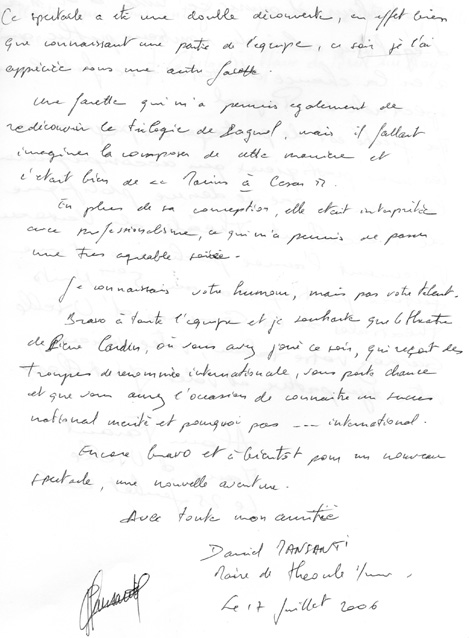 Ce spectacle a été une double découverte, en effet bien
que connaissant une partie de l'équipe, ce soir je l'ai
appréciée sous une autre facette.
Une facette qui m'a permis également de
redécouvrir la trilogie de Pagnol, mais il fallait
imaginer la composer de cette manière et
c'était bien de "Marius à César".
En plus de sa conception, elle était interprétée
avec professionalisme, ce qui m'a permis de passer
une très agréable soirée.
Je connaissais votre humour, mais pas votre talent.
Bravo à toute l'équipe et je souhaite que le théâtre
de Pierre Cardin, où vous avez joué ce soir, qui reçoit des
troupes de renommée internationale, vous porte chance
et que vous aurez l'occasion de connaître un succès
national mérité et pourquoi pas --- international.
Encore bravo et à bientôt pour un nouveau
spectacle, une nouvelle aventure.
Avec toute mon amitié
Daniel MANSANTI
Maire de Theoule s/mer.
Le 17 Juillet 2006